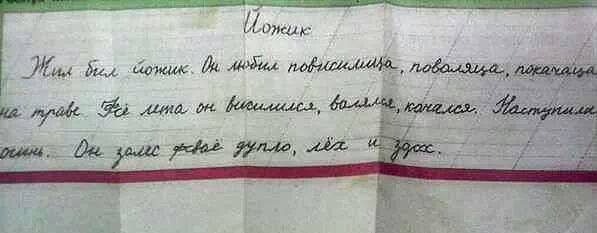 Йожик
Жил бил йожик. Он любил повисилица, поваляца, покачаца
на траве. Fсё лета он висилился, валялся, качался. Наступила
осинь. Он залес fсваё дупло, лёх и здох.